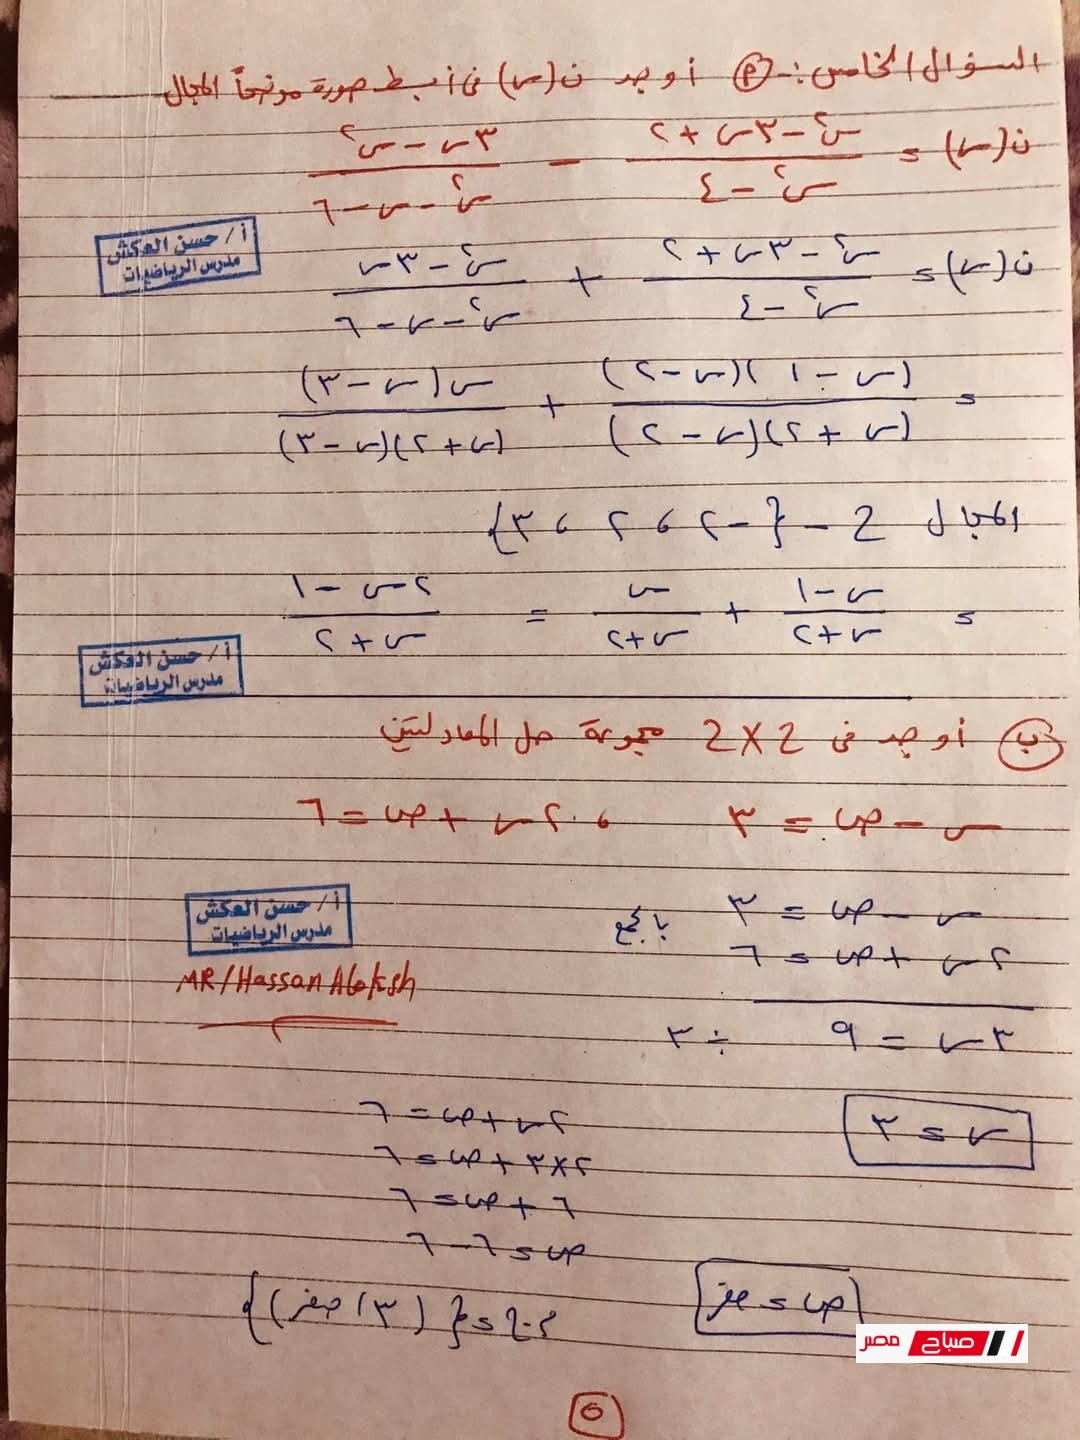 السؤال الخامس:- (أ) أوجد ن(س) فى أبسط صورة موضحاً المجال
ن(س) = (س² - ٣س + ٢)/(س² - ٤) - (٣س - س²)/(س² - س - ٦)
أ/ حسن العكش
مدرس الرياضيات
ن(س) = (س² - ٣س + ٢)/(س² - ٤) + (س² - ٣س)/(س² - س - ٦)
= (س - ١)(س - ٢)/(س + ٢)(س - ٢) + س(س - ٣)/(س + ٢)(س - ٣)
المجال ح - {-٢ ، ٢ ، ٣}
= (س - ١)/(س + ٢) + س/(س + ٢) = (٢س - ١)/(س + ٢)
أ/ حسن العكش
مدرس الرياضيات
(ب) أوجد فى ح × ح مجموعة حل المعادلتين
س - ص = ٣ ، ٢س + ص = ٦
س - ص = ٣ بالجمع
٢س + ص = ٦
أ/ حسن العكش
مدرس الرياضيات
MR/Hassan Alaksh
٣س = ٩ ÷ ٣
س = ٣
٢س + ص = ٦
٢×٣ + ص = ٦
٦ + ص = ٦
ص = ٦ - ٦
ص = صفر
م.ح = {(٣، صفر)}
صباح مصر
٥